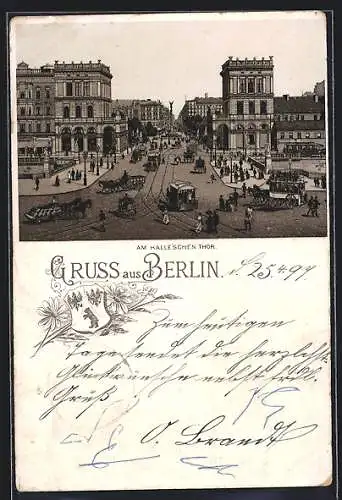 AM HALLE'SCHEN THOR.
GRUSS aus BERLIN. d. 25.4.97
Zum heutigen
Tage sendet die herzlichst.
Glückwünsche nebst
Gruß
O. Brandt